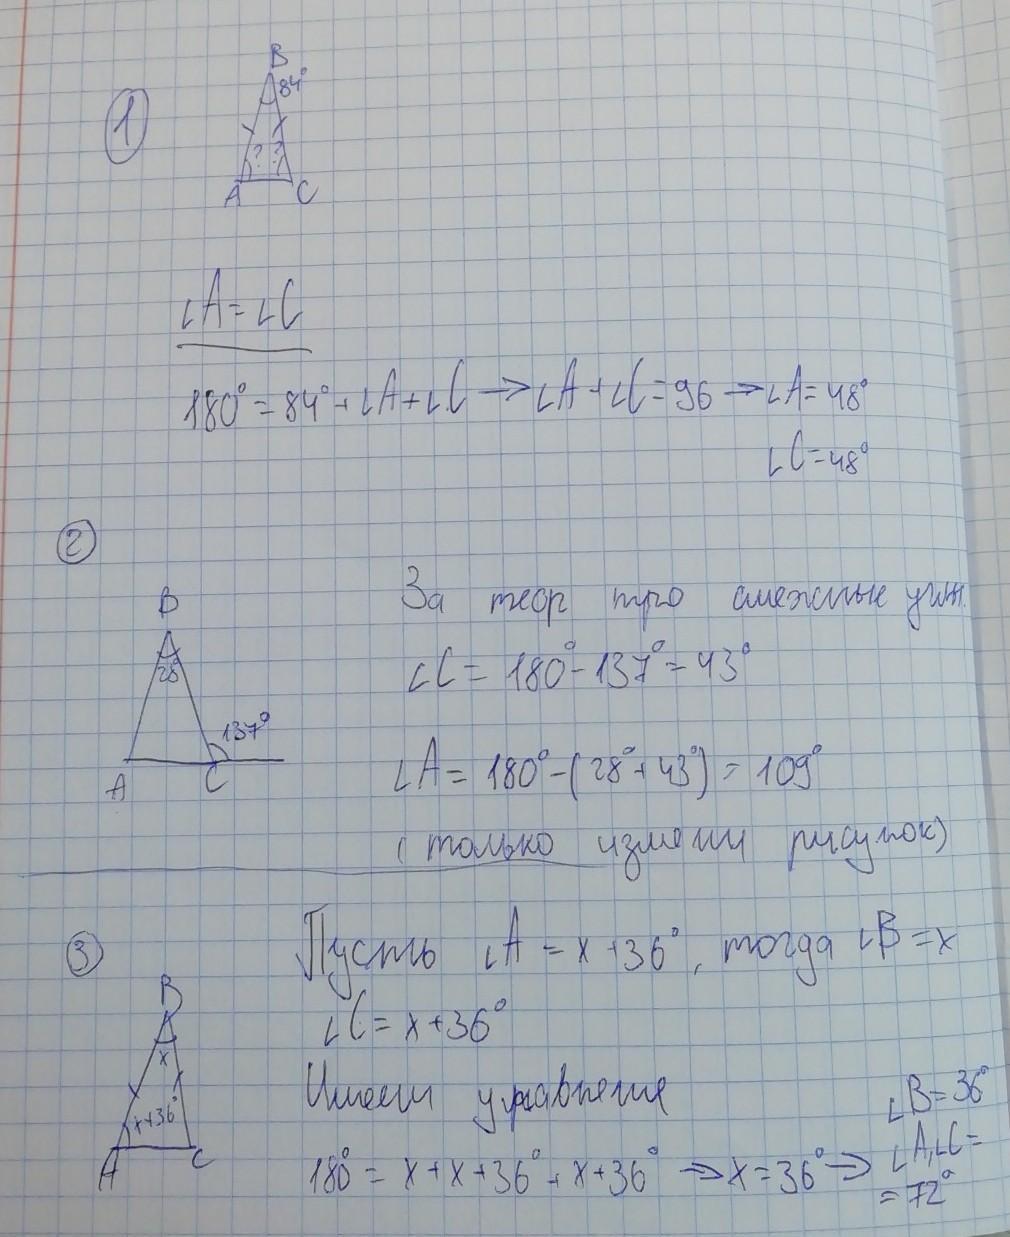 1
B
84°
? ?
A C
∠A = ∠C
180° = 84° + ∠A + ∠C → ∠A + ∠C = 96 → ∠A = 48°
∠C = 48°
2
B
28°
137°
A C
За теор про смежные
∠C = 180° - 137° = 43°
∠A = 180° - (28° + 43°) = 109°
(только измени рисунок)
3
Пусть ∠A = x + 36°, тогда ∠B = x
B
x
x+36°
A C
∠C = x + 36°
Имеем уравнения
180° = x + x + 36° + x + 36° → x = 36° →
∠B = 36°
∠A,∠C =
= 72°